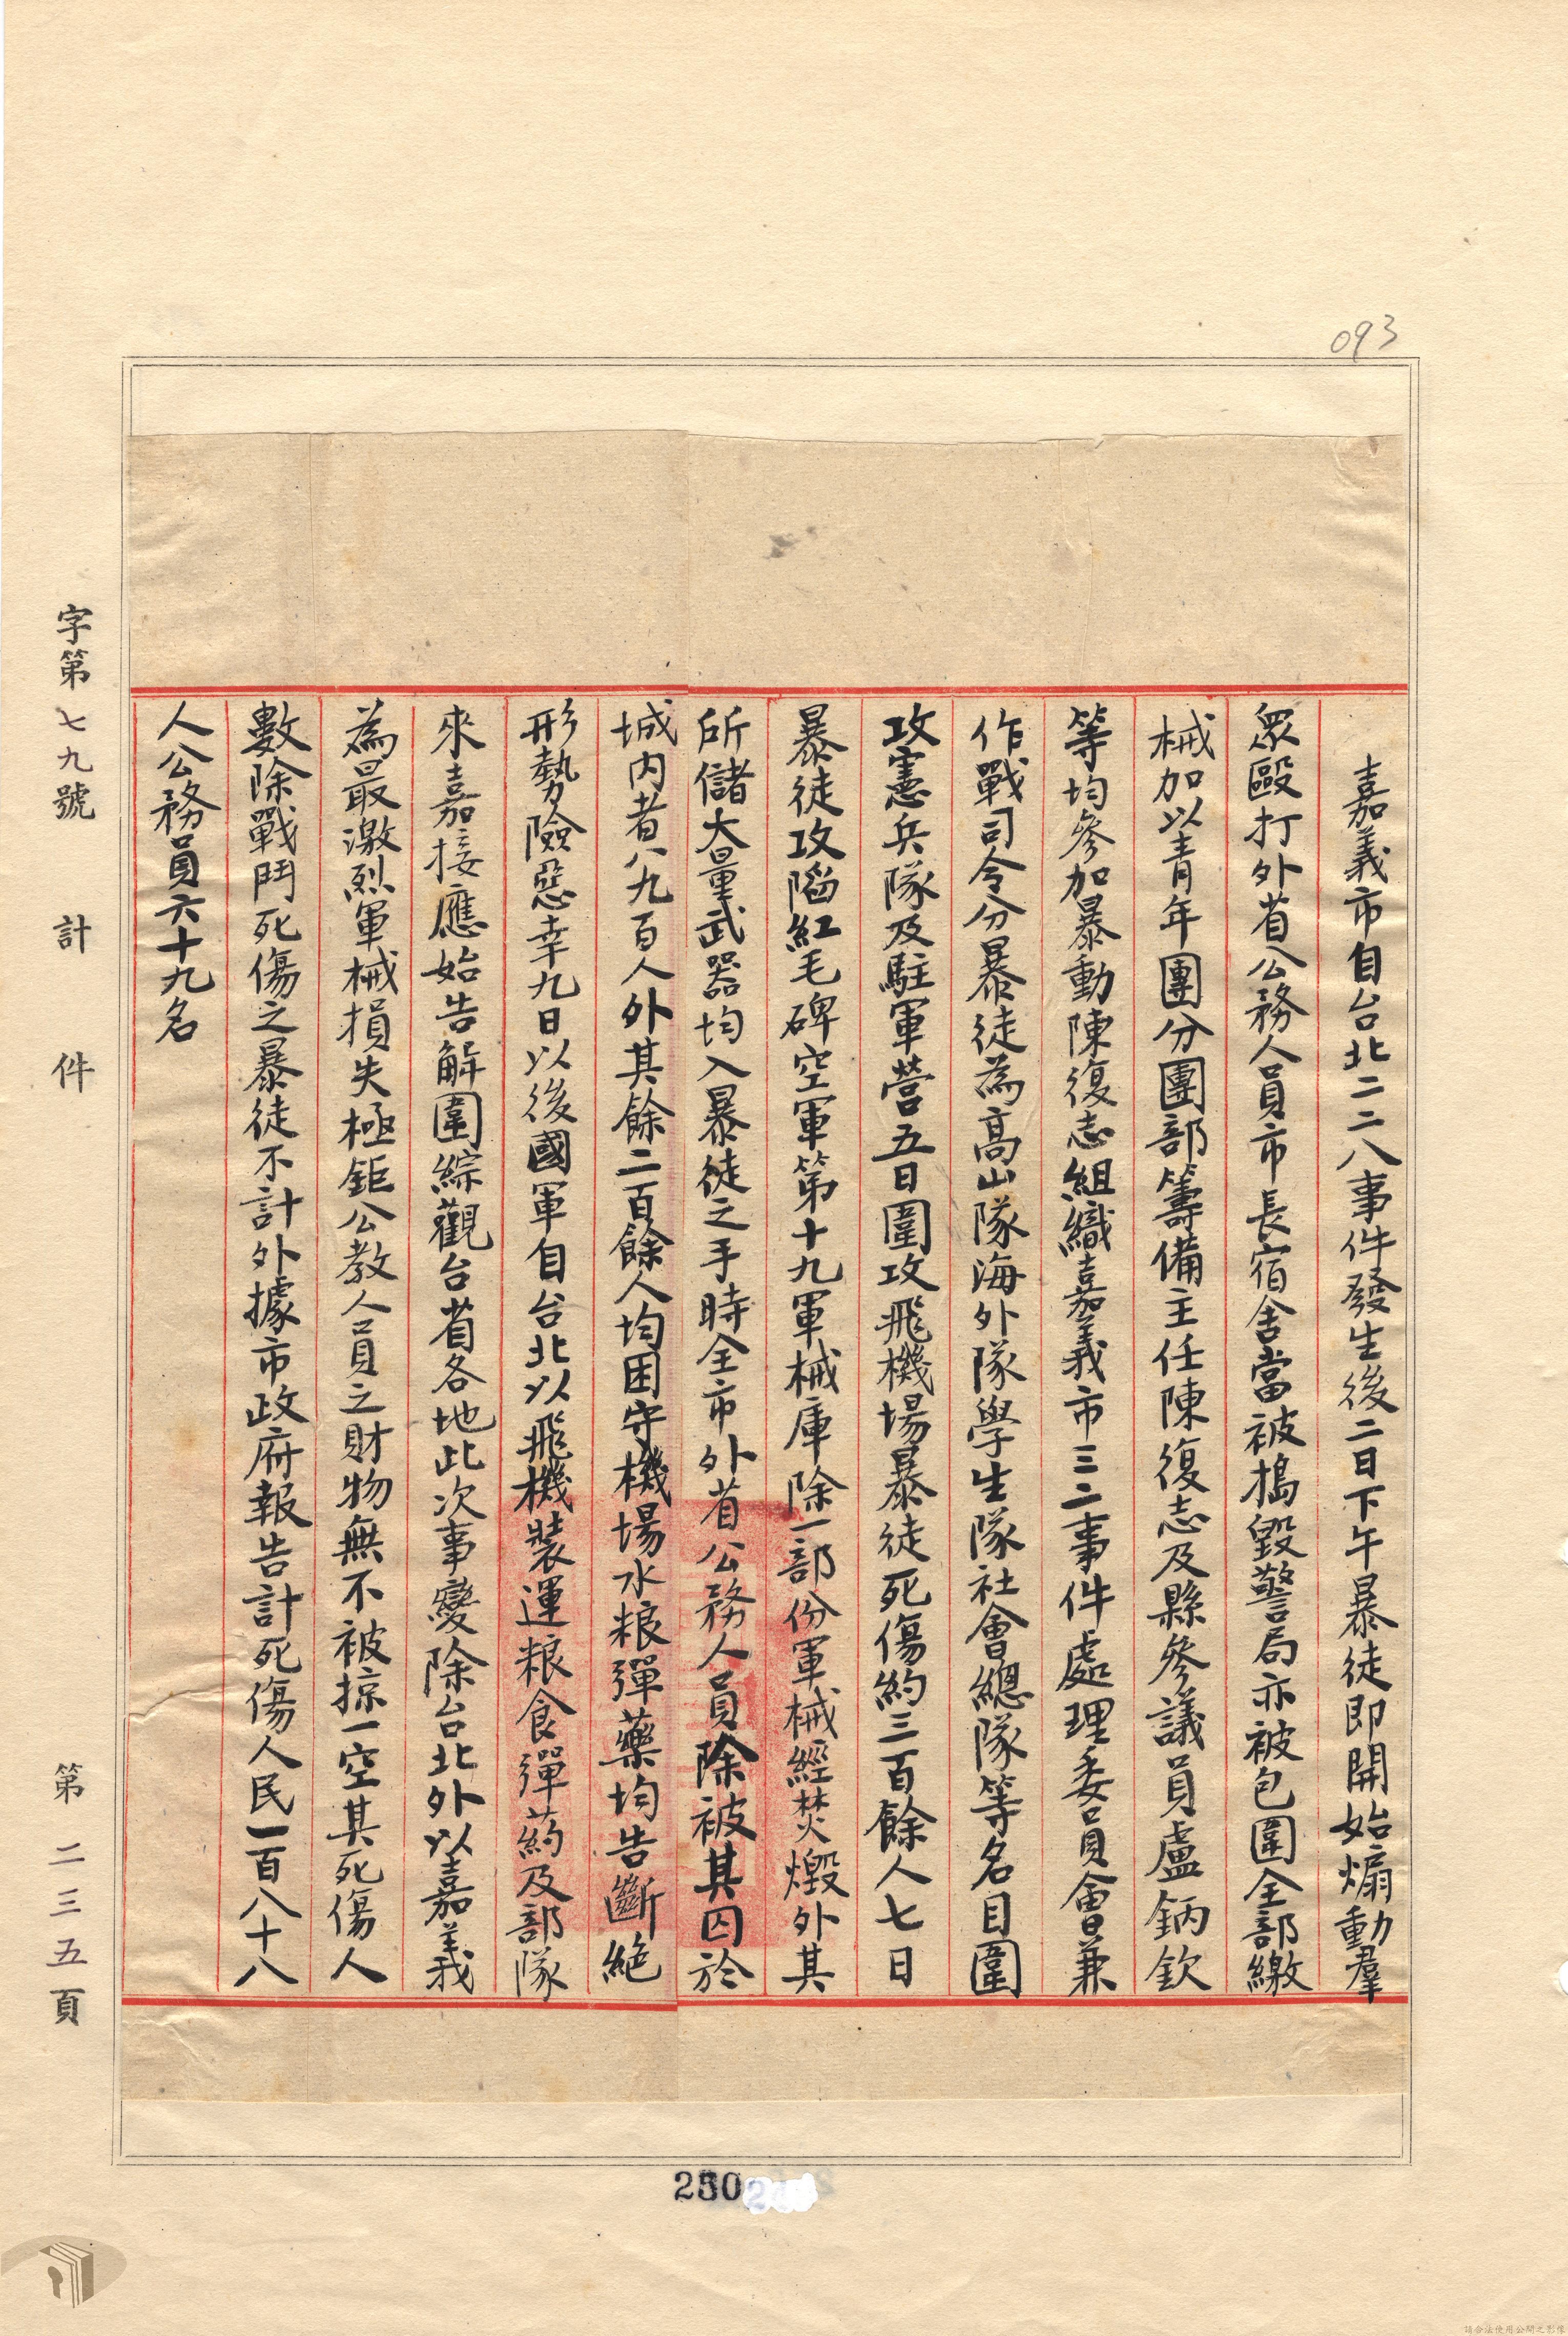 093
嘉義市自台北二二八事件發生後二日下午暴徒即開始煽動羣
眾毆打外省公務人員市長宿舍當被搗毀警局亦被包圍全部繳
械加以青年團分團部籌備主任陳復志及縣參議員盧鈵欽
等均參加暴動陳復志組織嘉義市三二事件處理委員會兼
作戰司令分暴徒為高山隊海外隊學生隊社會總隊等名目圍
攻憲兵隊及駐軍營五日圍攻飛機場暴徒死傷約三百餘人七日
暴徒攻陷紅毛碑空軍第十九軍械庫除一部份軍械經焚燬外其
所儲大量武器均入暴徒之手時全市外省公務人員除被其囚於
城內者八九百人外其餘二百餘人均困守機場水粮彈藥均告斷絕
形勢險惡幸九日以後國軍自台北以飛機裝運粮食彈葯及部隊
來嘉接應始告解圍綜觀台省各地此次事變除台北外以嘉義
為最激烈軍械損失極鉅公教人員之財物無不被掠一空其死傷人
數除戰鬥死傷之暴徒不計外據市政府報告計死傷人民一百八十八
人公務員六十九名
字第七九號 計 件 第二三五頁
250
請合法使用公開之影像